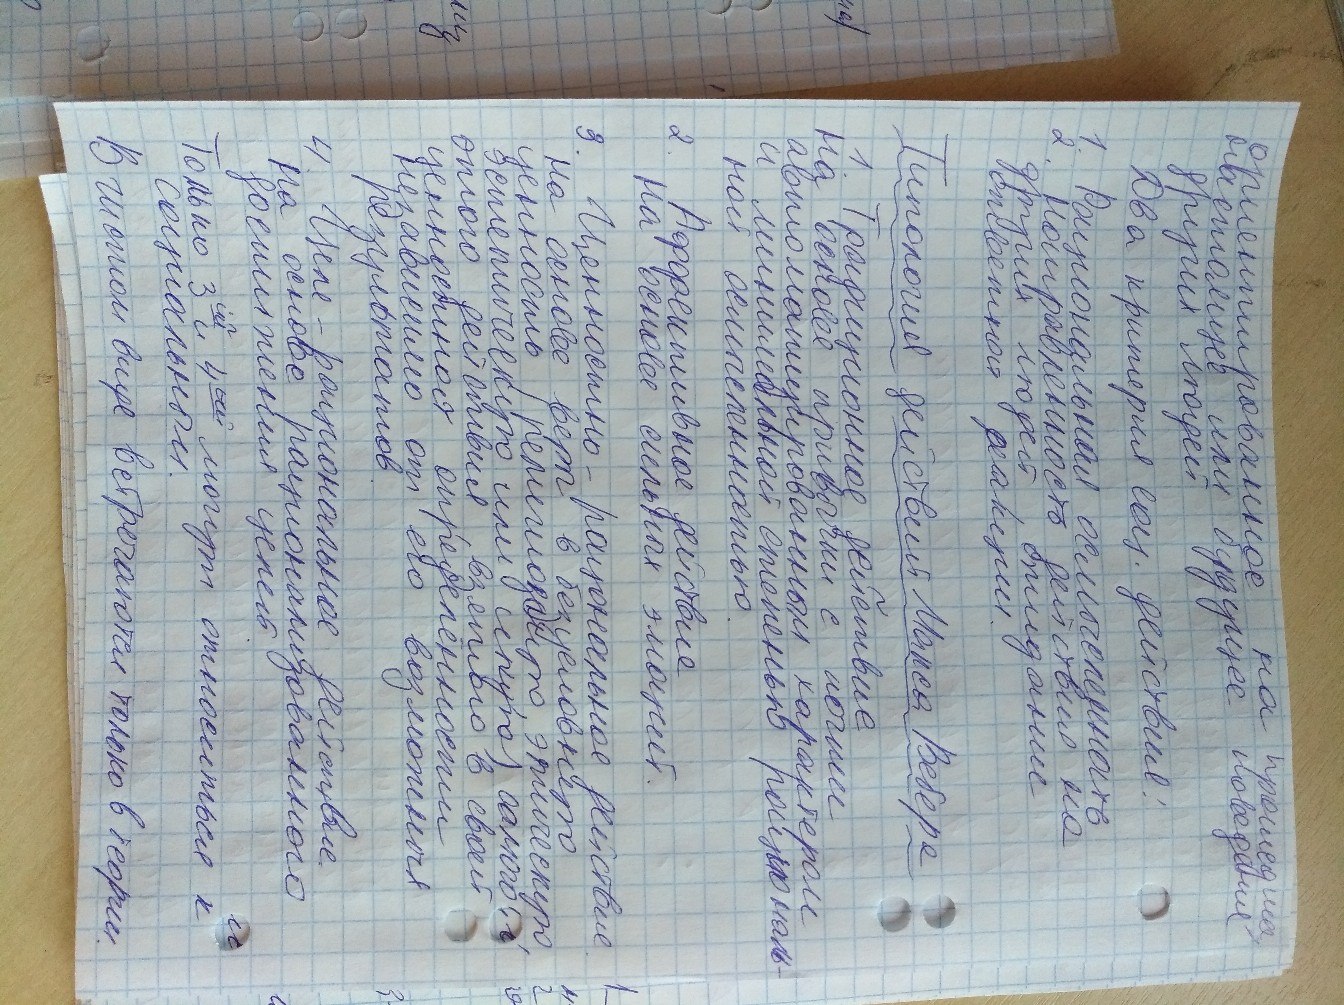 ориентированное на прошедшее,
настоящее или будущее поведения
других людей
Два критерия соц. действия:
1. Рациональная осмысленность
2. Направленность действия на
других людей, ожидание
ответной реакции.
Типология действий Макса Вебера
1. Традиционное действие
На основе привычки с почти
автоматизированным характером
и минимальной степенью рациональ-
ной осмысленностью.
2. Аффективное действие
На основе сильных эмоций.
3. Ценностно-рациональное действие.
На основе веры в безусловную
ценность (религиозную, этическую,
эстетическую или иную) самого
этого действия, взятого в своей
ценностной определенности
независимо от его возможных
результатов.
4. Целе-рациональное действие.
На основе рационализованного
достижения целей
Только 3ий и 4ый могут относиться к
социальным.
В чистом виде встречаются только в теории.